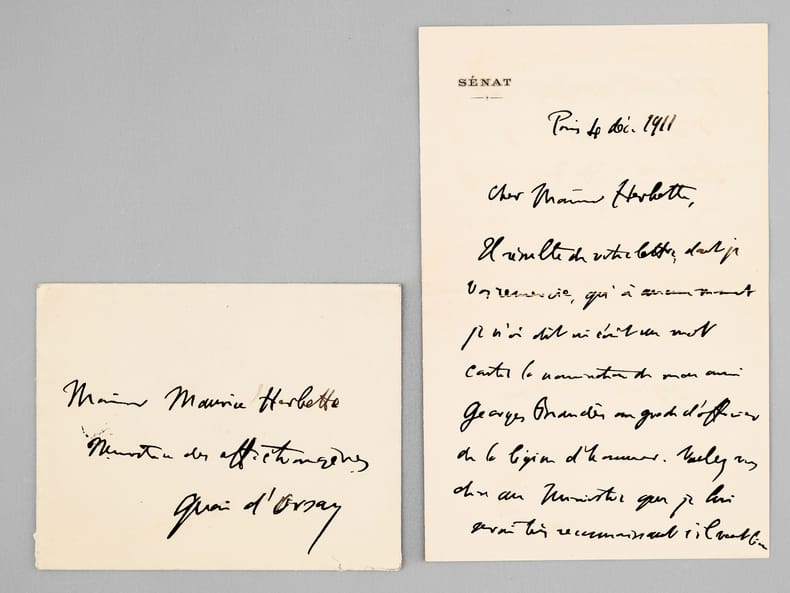 Monsieur Maurice Herbette
Ministère des aff. étrangères
Quai d'Orsay
SÉNAT
Paris 4 déc. 1911
Cher Monsieur Herbette,
Il résulte de votre lettre, dont je
vous remercie, qu'à aucun moment
je n'ai dit ni écrit un mot
contre la nomination de mon ami
Georges Brandès au grade d'officier
de la légion d'honneur. Voulez vous
dire au Ministre que je lui
serai très reconnaissant s'il veut bien